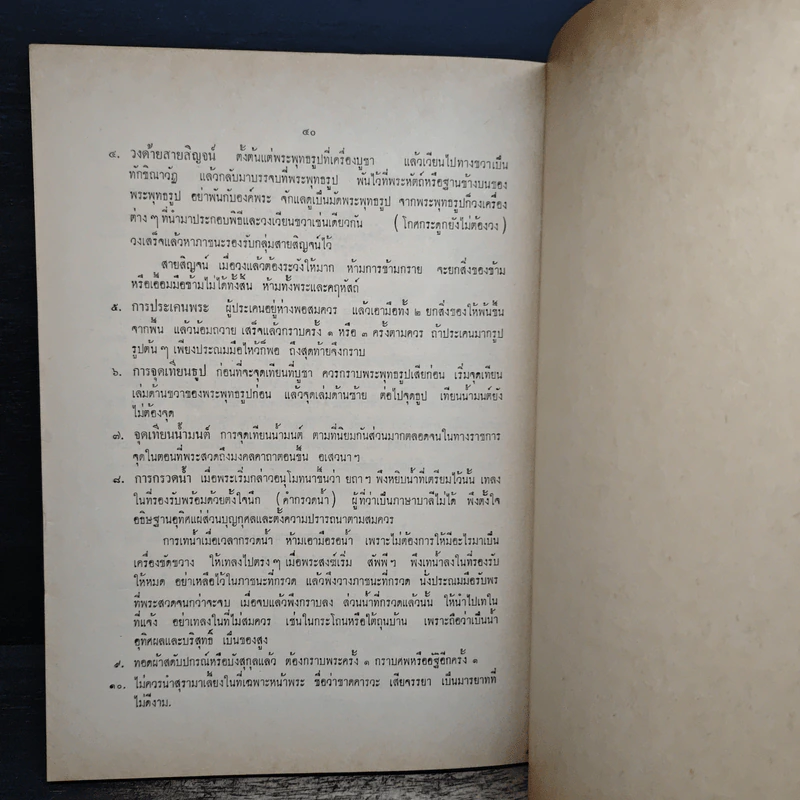 ๔๐
๔. วงด้ายสายสิญจน์ ตั้งต้นแต่พระพุทธรูปที่เครื่องบูชา แล้วเวียนไปทางขวาเป็น
ทักขิณาวัฏ แล้วกลับมาบรรจบที่พระพุทธรูป พันไว้ที่พระหัตถ์หรือฐานข้างบนของ
พระพุทธรูป อย่าพันกับองค์พระ จักแลดูเป็นมัดพระพุทธรูป จากพระพุทธรูปก็วงเครื่อง
ต่าง ๆ ที่นำมาประกอบพิธีและวงเวียนขวาเช่นเดียวกัน (โกศกระดูกยังไม่ต้องวง)
วงเสร็จแล้วหาภาชนะรองรับกลุ่มสายสิญจน์ไว้
สายสิญจน์ เมื่อวงแล้วต้องระวังให้มาก ห้ามการข้ามกราย จะยกสิ่งของข้าม
หรือเอื้อมมือข้ามไม่ได้ทั้งสิ้น ห้ามทั้งพระและคฤหัสถ์
๕. การประเคนพระ ผู้ประเคนอยู่ห่างพอสมควร แล้วเอามือทั้ง ๒ ยกสิ่งของให้พ้นขึ้น
จากพื้น แล้วน้อมถวาย เสร็จแล้วกราบครั้ง ๑ หรือ ๓ ครั้งตามควร ถ้าประเคนมากรูป
รูปต้น ๆ เพียงประณมมือไหว้ก็พอ ถึงสุดท้ายจึงกราบ
๖. การจุดเทียนธูป ก่อนที่จะจุดเทียนที่บูชา ควรกราบพระพุทธรูปเสียก่อน เริ่มจุดเทียน
เล่มด้านขวาของพระพุทธรูปก่อน แล้วจุดเล่มด้านซ้าย ต่อไปจุดธูป เทียนน้ำมนต์ยัง
ไม่ต้องจุด
๗. จุดเทียนน้ำมนต์ การจุดเทียนน้ำมนต์ ตามที่นิยมกันส่วนมากตลอดจนในทางราชการ
จุดในตอนที่พระสวดถึงมงคลคาถาตอนขึ้น อเสวนา ฯ
๘. การกรวดน้ำ เมื่อพระเริ่มกล่าวอนุโมทนาขึ้นว่า ยถา ฯ พึงหยิบน้ำที่เตรียมไว้นั้น เทลง
ในที่รองรับพร้อมด้วยตั้งใจนึก (คำกรวดน้ำ) ผู้ที่ว่าเป็นภาษาบาลีไม่ได้ พึงตั้งใจ
อธิษฐานอุทิศแผ่ส่วนบุญกุศลและตั้งความปรารถนาตามสมควร
การเทน้ำเมื่อเวลากรวดน้ำ ห้ามเอามือรอน้ำ เพราะไม่ต้องการให้มีอะไรมาเป็น
เครื่องขัดขวาง ให้เทลงไปตรง ๆ เมื่อพระสงฆ์เริ่ม สัพพี ฯ พึงเทน้ำลงในที่รองรับ
ให้หมด อย่าเหลือไว้ในภาชนะที่กรวด แล้วพึงวางภาชนะที่กรวด นั่งประณมมือรับพร
ที่พระสวดจนกว่าจะจบ เมื่อจบแล้วพึงกราบลง ส่วนน้ำที่กรวดแล้วนั้น ให้นำไปเทใน
ที่แจ้ง อย่าเทลงในที่ไม่สมควร เช่นในกระโถนหรือใต้ถุนบ้าน เพราะถือว่าเป็นน้ำ
อุทิศผลและบริสุทธิ์ เป็นของสูง
๙. ทอดผ้าสดับปกรณ์หรือบังสุกุลแล้ว ต้องกราบพระครั้ง ๑ กราบศพหรืออัฐิอีกครั้ง ๑
๑๐. ไม่ควรนำสุรามาเลี้ยงในที่เฉพาะหน้าพระ ชื่อว่าขาดคารวะ เสียจรรยา เป็นมารยาทที่
ไม่ดีงาม.